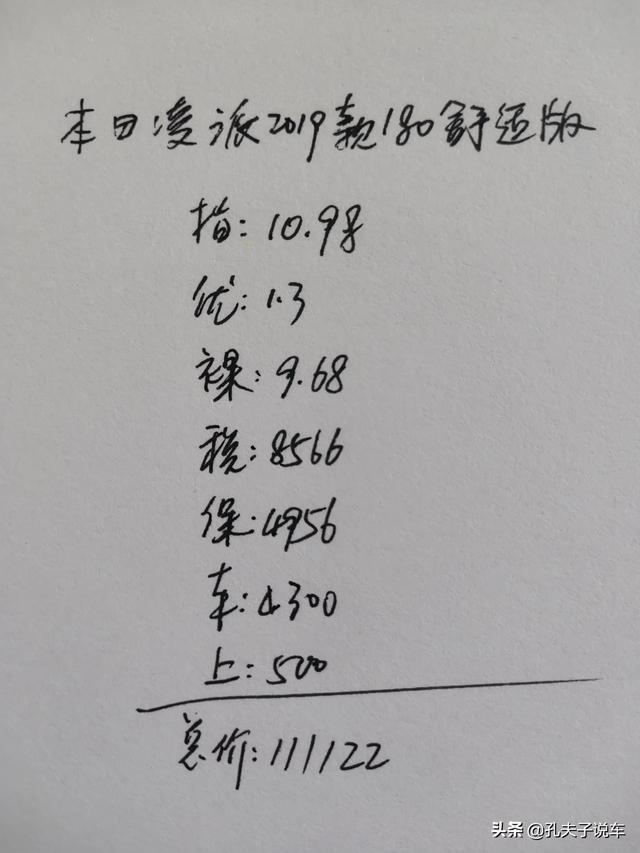 本田凌派2019款180舒适版
指:10.98
优:1.3
裸:9.68
税:8566
保:4956
车:4300
上:500
总价:111122
头条@孔夫子说车